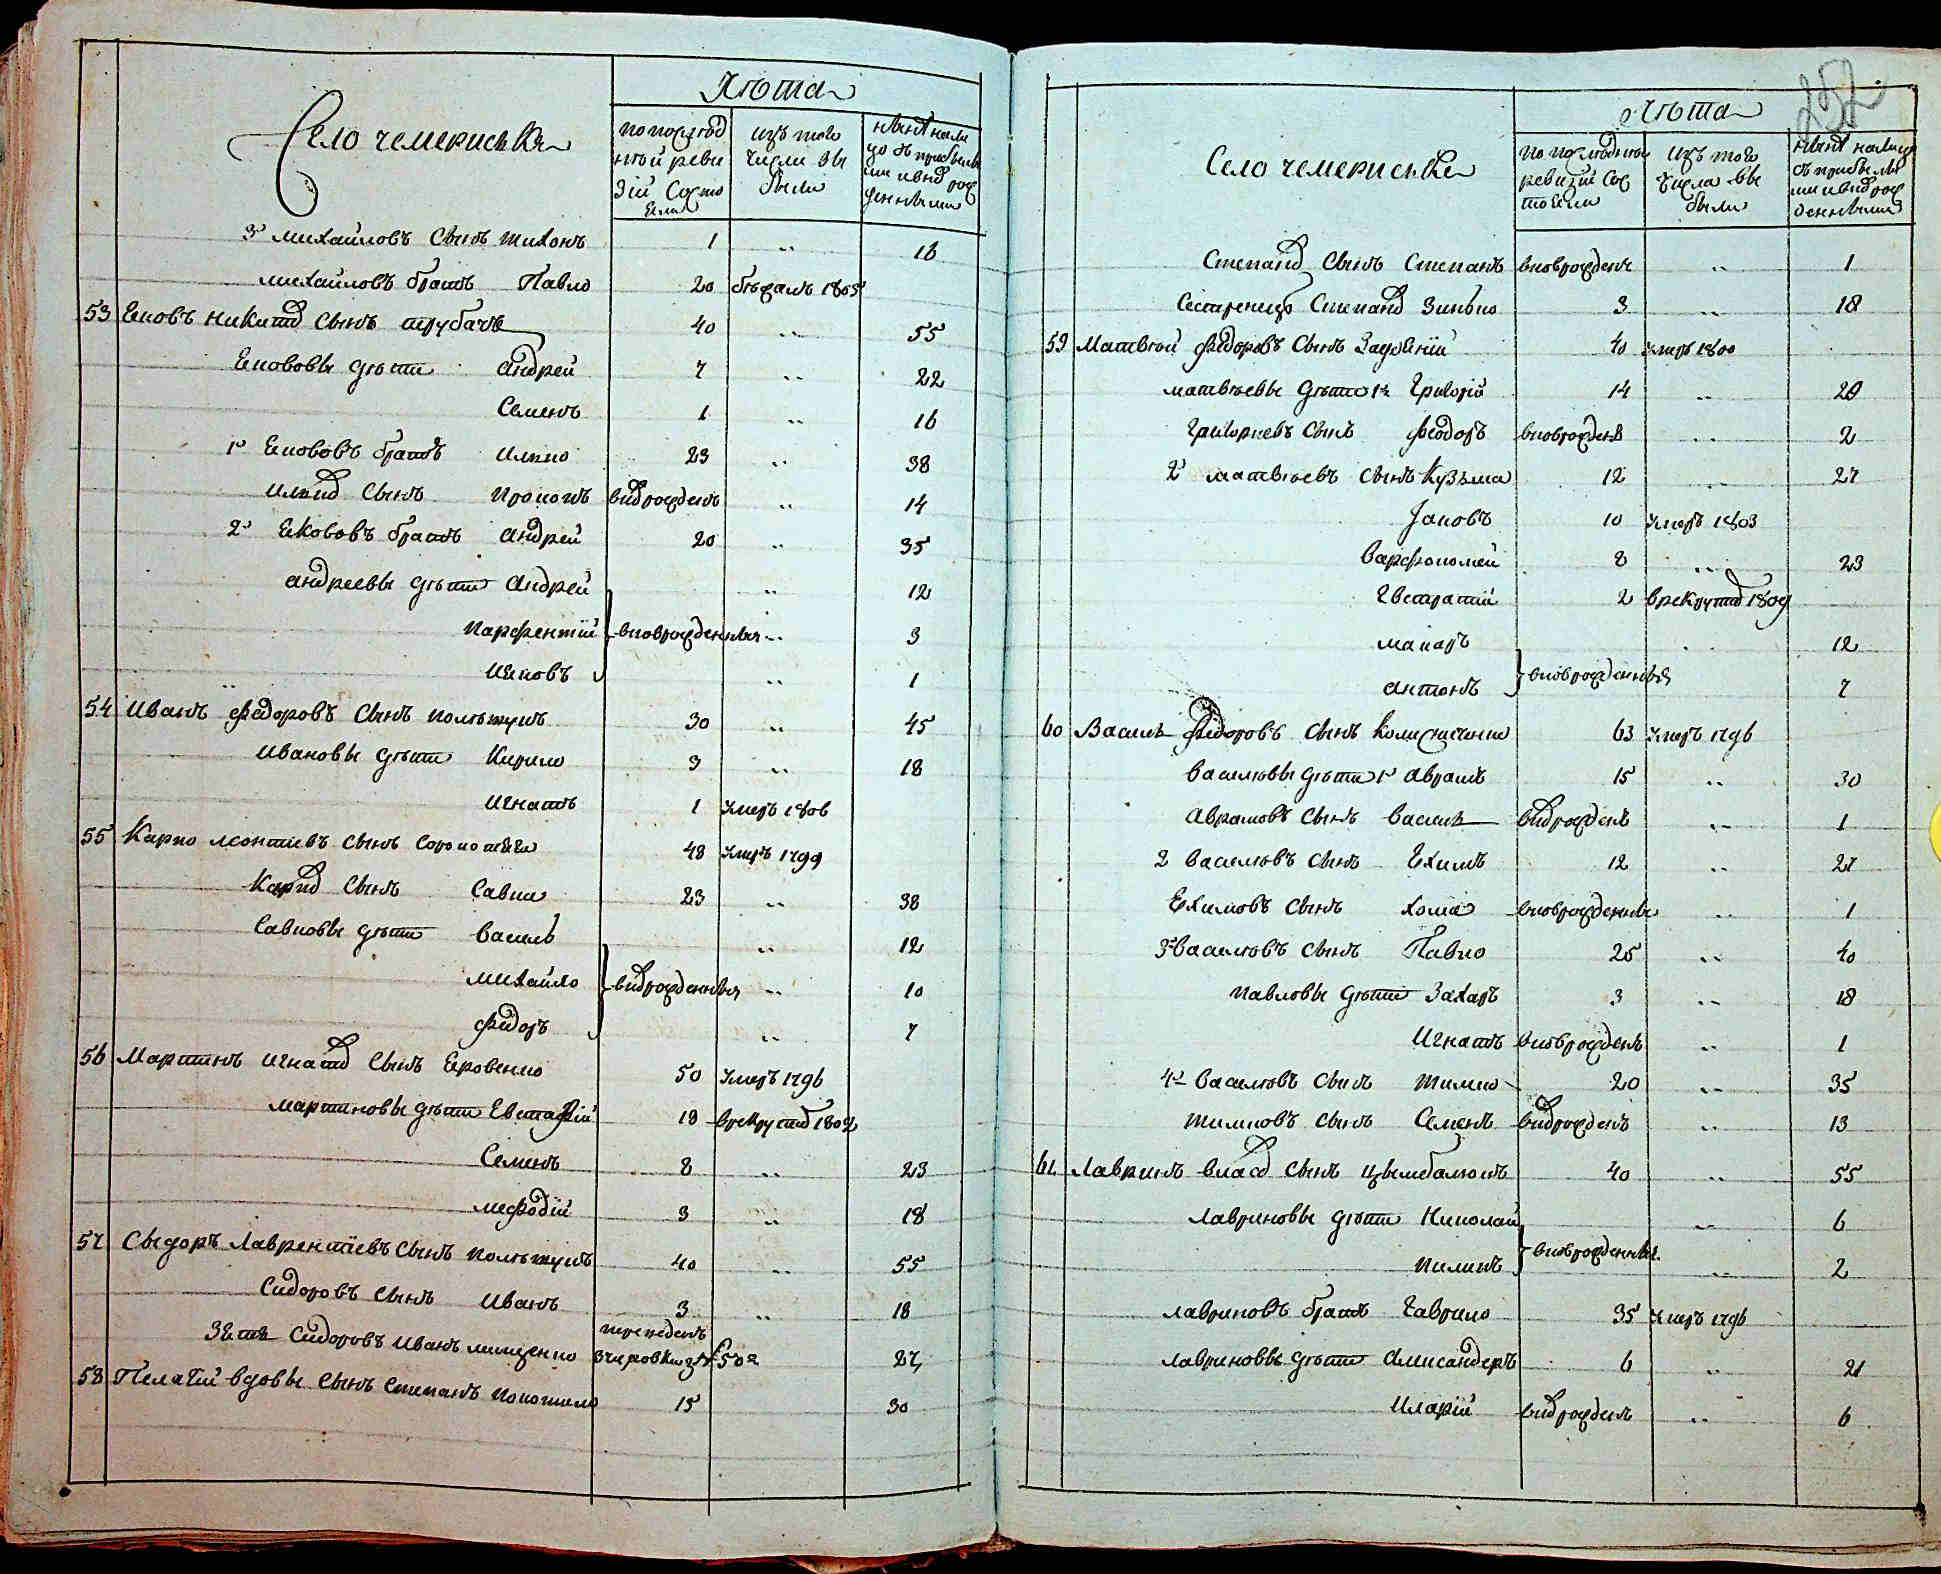 Село Чемериськи
Лѣта
по послѣдней ревизiи состояли
изъ того числа выбыли
нынѣ на лицо съ прибылыми и вновь рожденными
3й Михайловъ сынъ Тихонъ 1 .. 16
Михайловъ братъ Павло 20 бѣжалъ 1805
53 Яковъ Никитѡ сынъ Трубачъ 40 .. 55
Якововы дѣти Андрей 7 .. 22
Семенъ 1 .. 16
1й Якововъ братъ Илько 23 .. 38
сынъ Прокопъ внѡврожденъ .. 14
2й Якововъ братъ Андрей 20 .. 35
Андреевы дѣти Андрей .. 12
Парфентiй вноврожденныя .. 3
Яковъ .. 1
54 Иванъ Федоровъ сынъ 30 .. 45
Ивановы дѣти Кирило 3 .. 18
Игнатъ 1 умеръ 1806
55 Карпо Леонтiевъ сынъ 48 умеръ 1799
Карпѡ сынъ Савка 23 .. 38
Савковы дѣти Василь .. 12
Михайло внѡврожденныя .. 10
Федоръ .. 7
56 Мартинъ Игнатѡ сынъ Яровенко 50 умеръ 1796
Мартиновы дѣти Евстафiй 18 в рекрутѡ 1802
Семенъ 8 .. 23
Мефодiй 3 .. 18
57 Сыдоръ Лаврентiевъ сынъ 40 .. 55
Сидоровъ сынъ Иванъ 3 .. 18
Зять Сидоровъ Иванъ Мищенко 27
58 Пелагiи вдовы сынъ Степанъ 15 30
252
Село Чемериськи
Лѣта
по послѣдней ревизiи состояли
изъ того числа выбыли
нынѣ на лицо съ прибылыми и вновь рожденными
Степанѡ сынъ Степанъ вновроженъ .. 1
Степанѡ Зинько 3 .. 18
59 Матвѣй Федоровъ сынъ 40 умеръ 1800
Матвѣевы дѣти 1й Григорiй 14 .. 29
Григориевъ сынъ Феодоръ вноврожденъ .. 2
2й Матвѣевъ сынъ Кузьма 12 .. 27
Яковъ 10 умеръ 1803
Варфоломей 8 .. 23
Евстратiй 2 в рекрутѡ 1809
Макаръ .. 12
Антонъ вноврожденныя 7
60 Василь Федоровъ сынъ Колисниченко 63 умеръ 1796
Васильовы дѣти 1й Аврамъ 15 .. 30
Аврамовъ сынъ Василь внѡврожденъ .. 1
2 Васильовъ сынъ Ехимъ 12 .. 27
Ехимовъ сынъ Хома вноврожденны .. 1
3й Васильовъ сынъ Павло 25 .. 40
Павловы дѣти Захаръ 3 .. 18
Игнатъ вноврожденъ .. 1
4й Васильовъ сынъ Тимко 20 .. 35
Тимковъ сынъ Семенъ внѡврожденъ .. 13
61 Лавринъ Власѡ сынъ Цымбалюкъ 40 .. 55
Лавриновы дѣти Николай .. 6
Пилипъ вноврожденныя .. 2
Лавриновъ братъ Гаврило 35 умеръ 1796
Лавриновы дѣти Александеръ 6 .. 21
Иларiй внѡврожденъ .. 6